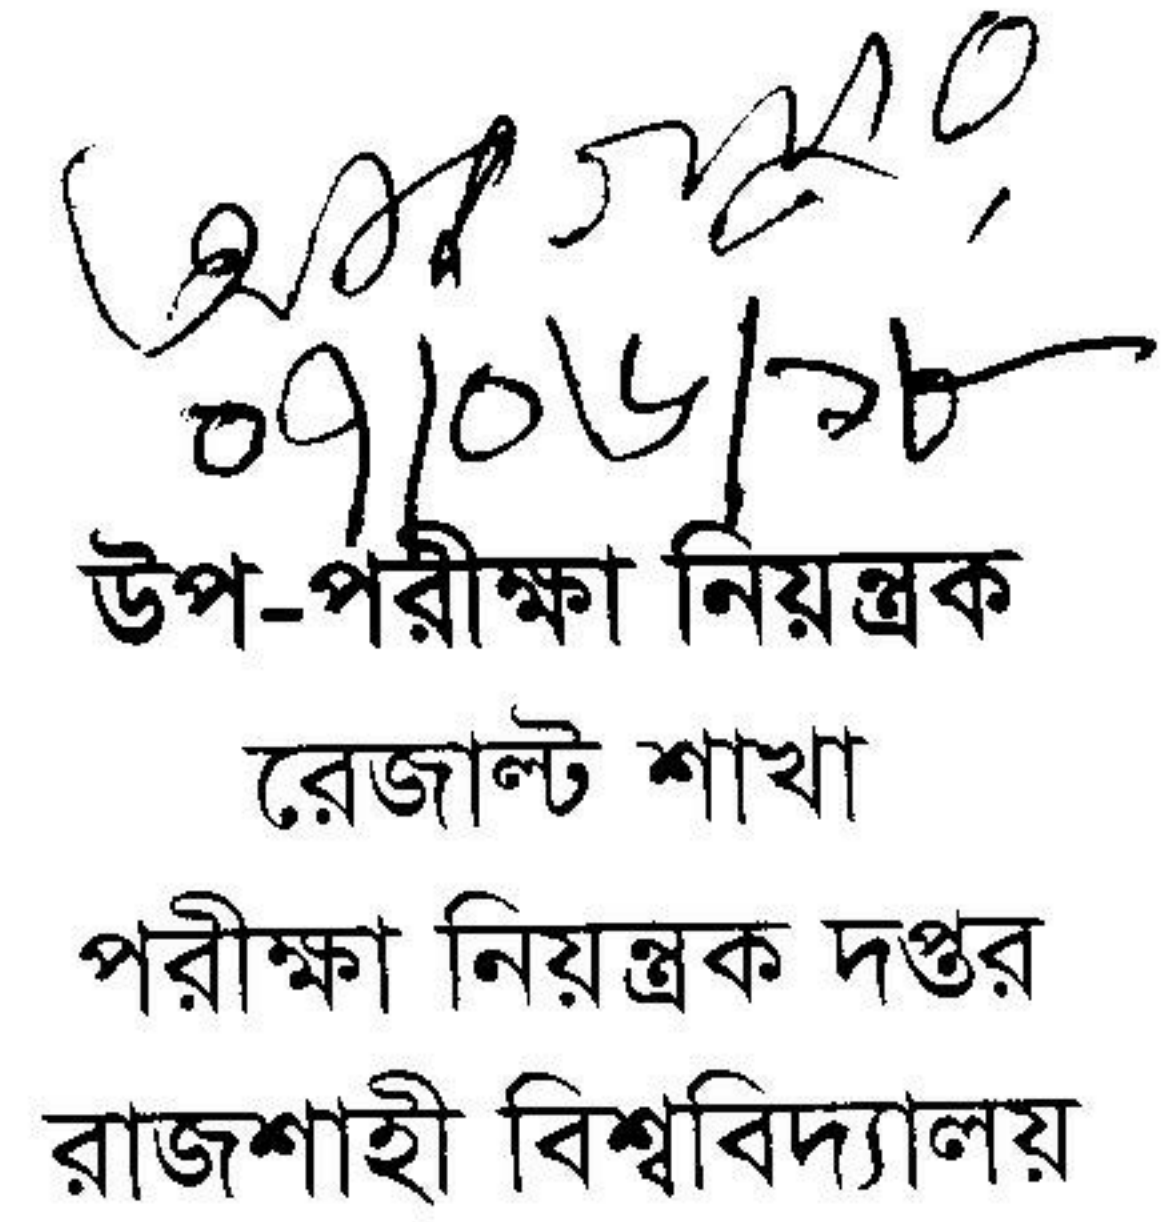 ০৭/০৬/১৮
উপ-পরীক্ষা নিয়ন্ত্রক
রেজাল্ট শাখা
পরীক্ষা নিয়ন্ত্রক দপ্তর
রাজশাহী বিশ্ববিদ্যালয়